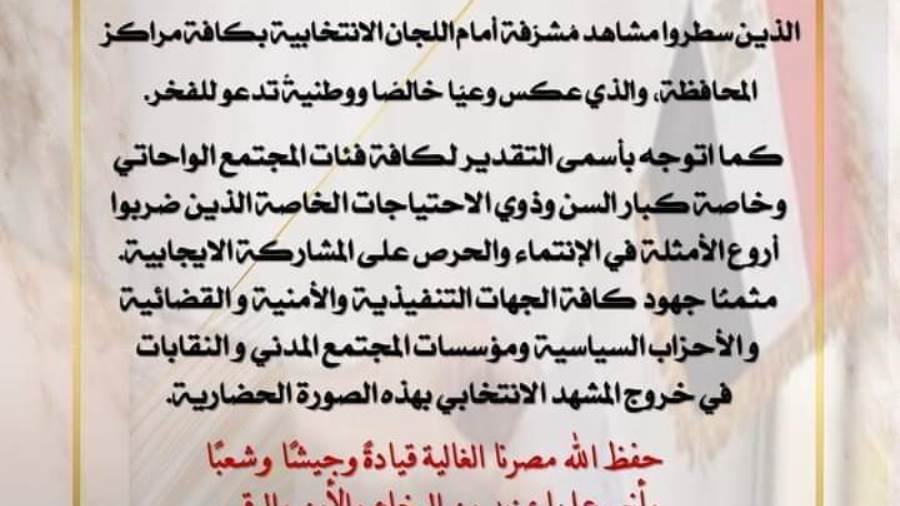 الذين سطروا مشاهد مُشرّفة أمام اللجان الانتخابية بكافة مراكز
المحافظة، والذي عكس وعيًا خالصًا ووطنيةً تدعو للفخر.
كما اتوجه بأسمى التقدير لكافة فئات المجتمع الواحاتي
وخاصة كبار السن وذوي الاحتياجات الخاصة الذين ضربوا
أروع الأمثلة في الإنتماء والحرص على المشاركة الايجابية.
مثمنًا جهود كافة الجهات التنفيذية والأمنية و القضائية
و الأحزاب السياسية ومؤسسات المجتمع المدني و النقابات
في خروج المشهد الانتخابي بهذه الصورة الحضارية.
حفظ الله مصرنا الغالية قيادةً وجيشًا وشعبًا